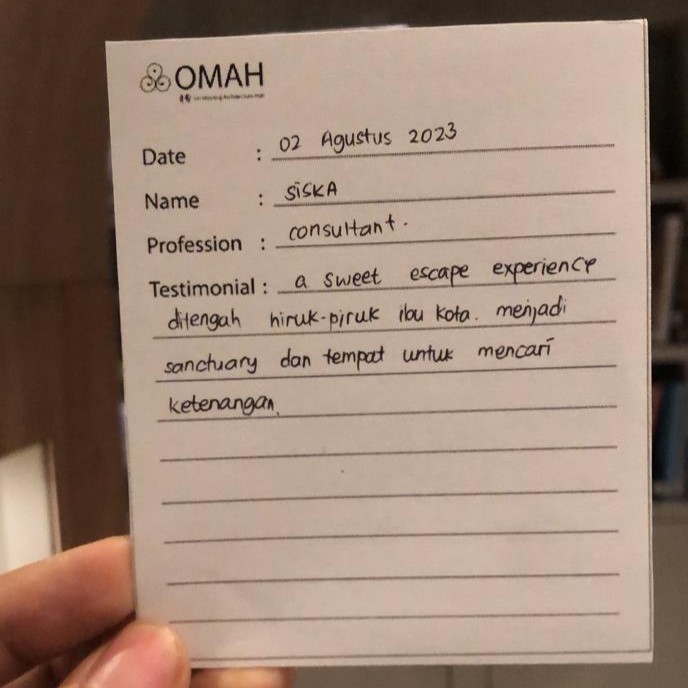 OMAH
Date : 02 Agustus 2023
Name : SiSKA
Profession : consultant.
Testimonial : a sweet escape experience
ditengah hiruk-piruk ibu kota. menjadi
sanctuary dan tempat untuk mencari
ketenangan.